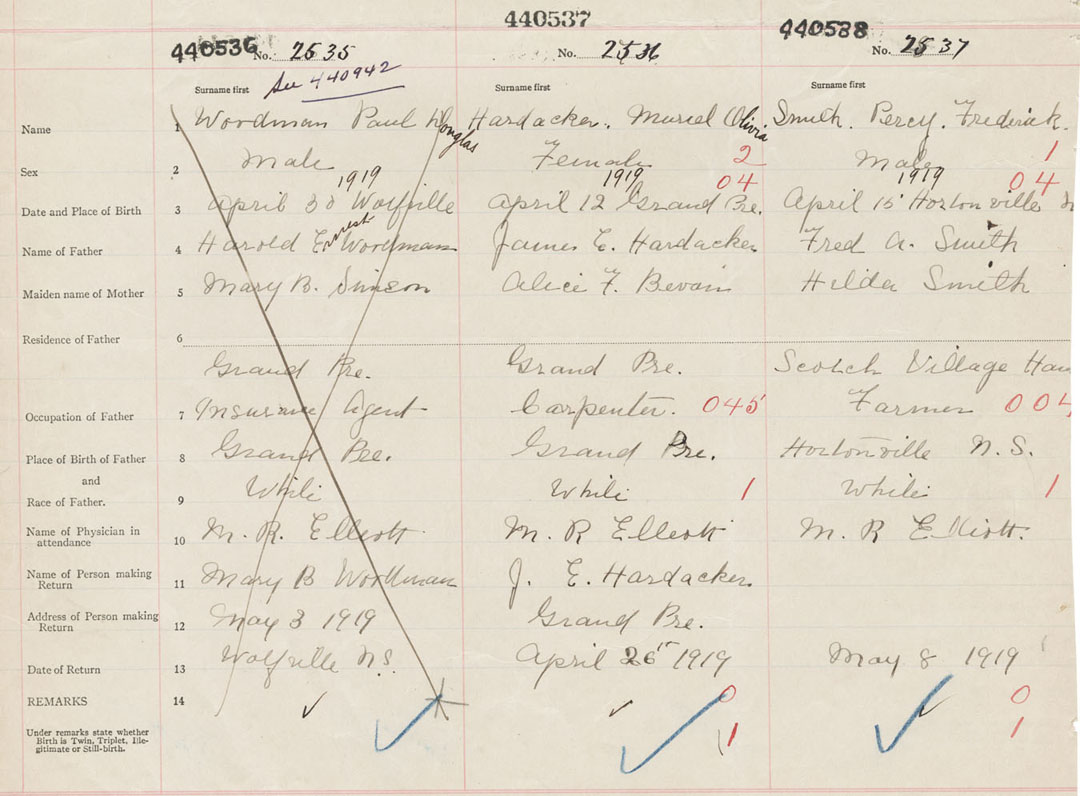 440536 No. 2535
440537 No. 2536
440538 No. 2537
See 440942
Surname first Surname first Surname first
Name 1 Woodman Paul Douglas Hardacker. Muriel Olivia Smith. Percy. Frederick.
Sex 2 Male Female 2 Male 1
1919 1919 04 1919 04
Date and Place of Birth 3 April 30 Wolfville April 12 Grand Pre. April 15 Hortonville
Name of Father 4 Harold Ernest Woodman James E. Hardacker Fred A. Smith
Maiden name of Mother 5 Mary B. Simson Alice F. Bevan Hilda Smith
Residence of Father 6
Grand Pre. Grand Pre. Scotch Village Han
Occupation of Father 7 Insurance Agent Carpenter. 045 Farmer 004
Place of Birth of Father 8 Grand Pre. Grand Pre. Hortonville N.S.
and
Race of Father. 9 White White 1 White 1
Name of Physician in
attendance 10 M. R. Elliott M. R Elliott M. R Elliott.
Name of Person making
Return 11 Mary B Woodman J. E. Hardacker.
Address of Person making
Return 12 May 3 1919 Grand Pre.
Date of Return 13 Wolfville N.S. April 26 1919 May 8 1919
REMARKS 14 0 0
Under remarks state whether
Birth is Twin, Triplet, Ille-
gitimate or Still-birth. 1 1